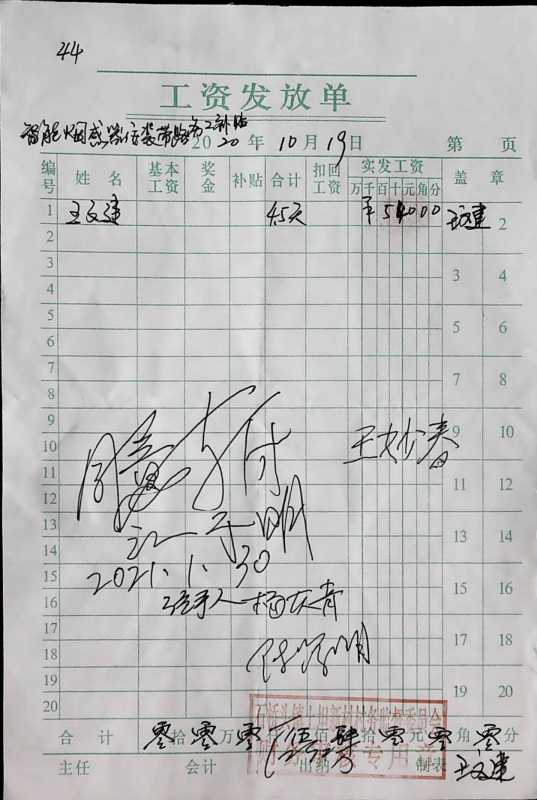 44
工资发放单
智能烟感器安装带路务工补贴
2020年10月19日 第 页
编号 姓名 基本工资 奖金 补贴 合计 扣回工资 实发工资 万千百十元角分 盖章
1 王文建 4.5天 ¥54000 王文建 2
2
3 3 4
4
5 5 6
6
7 7 8
8
9 9 10
10 王妙春
同意支付
11 11 12
12
13 13 14
14
2021.1.30
15 15 16
16
经手人
17 17 18
18
19 19 20
20
合计 零拾零万零仟伍佰拾零元零角零分
主任 会计 出纳 制表 王文建